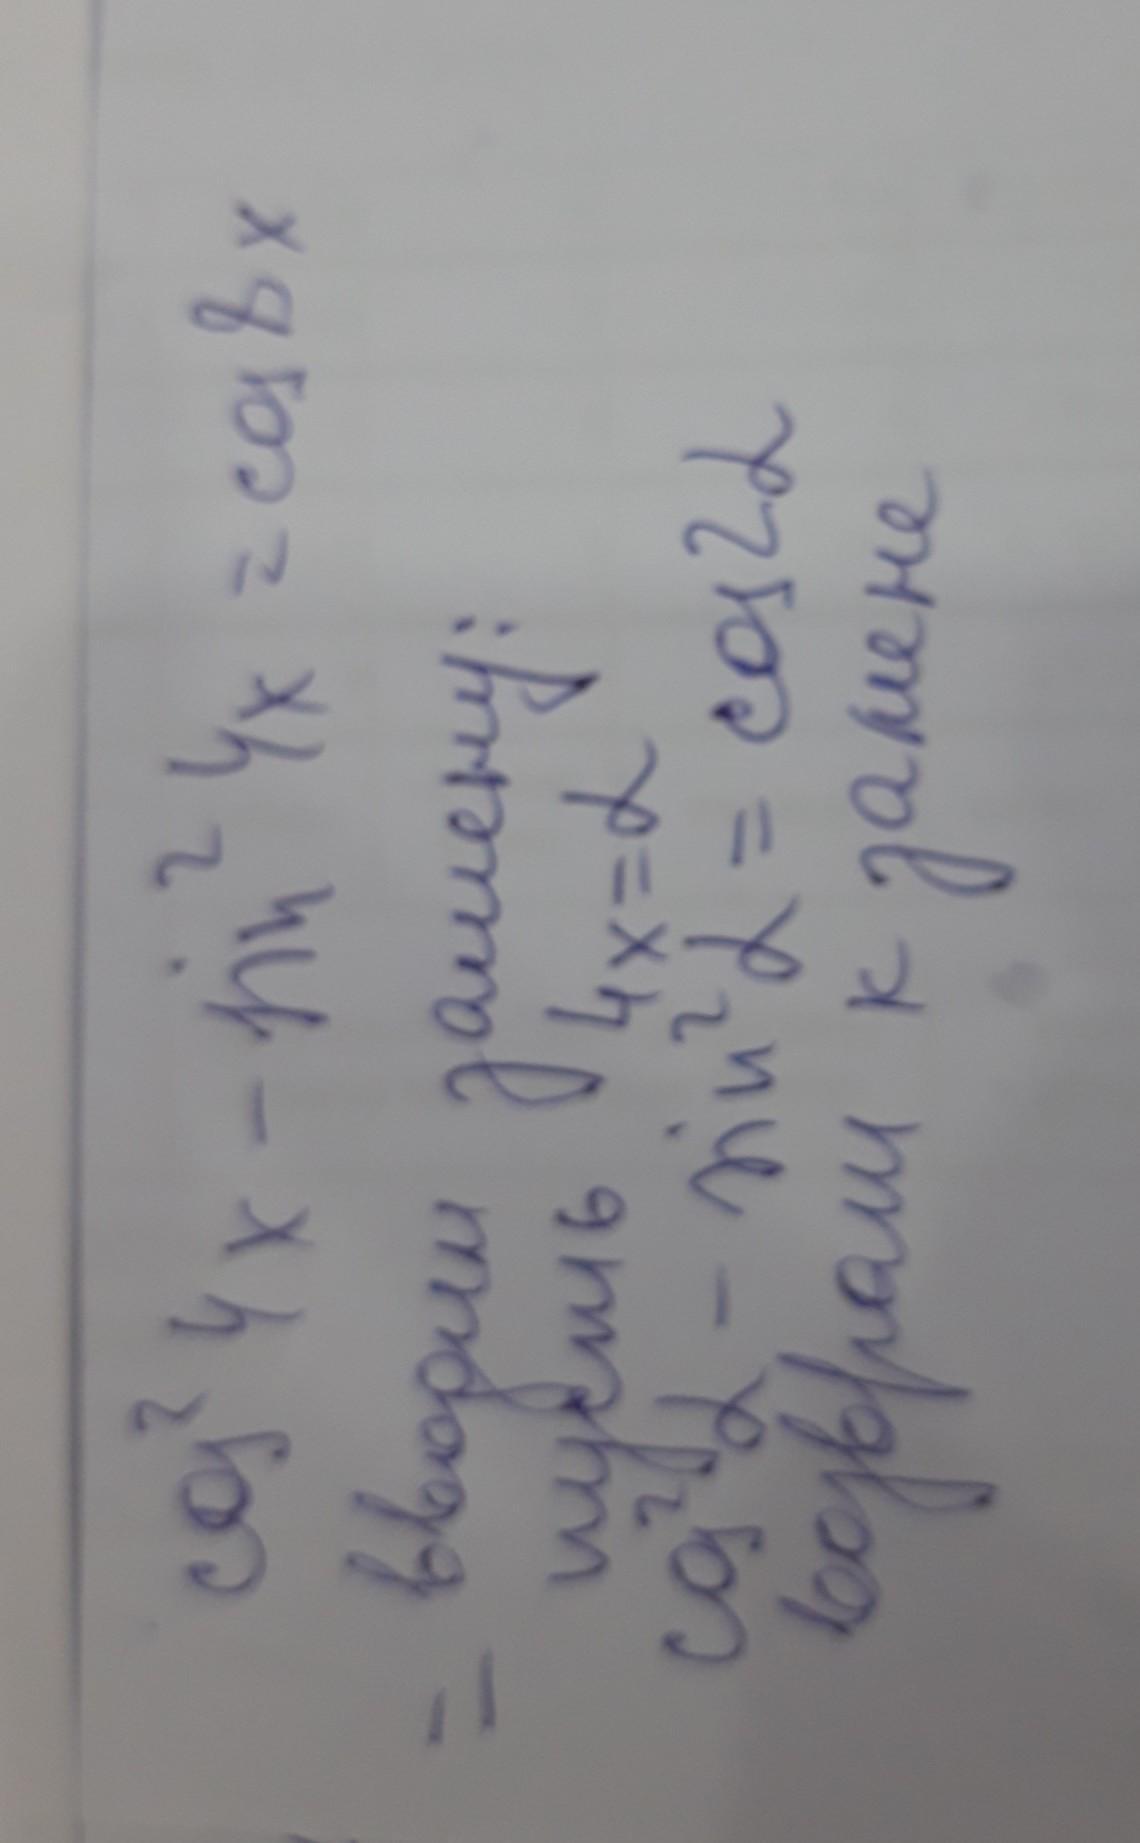 cos² 4x - sin² 4x = cos 8x
= вводим замену:
пусть 4x = α
cos² α - sin² α = cos 2α
возврат к замене